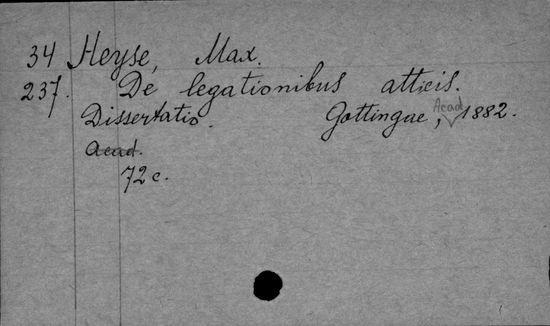 34 Heyse, Max.
237. De legationibus atticis.
Dissertatio. Gottingae, Acad. 1882.
Acad.
72 c.